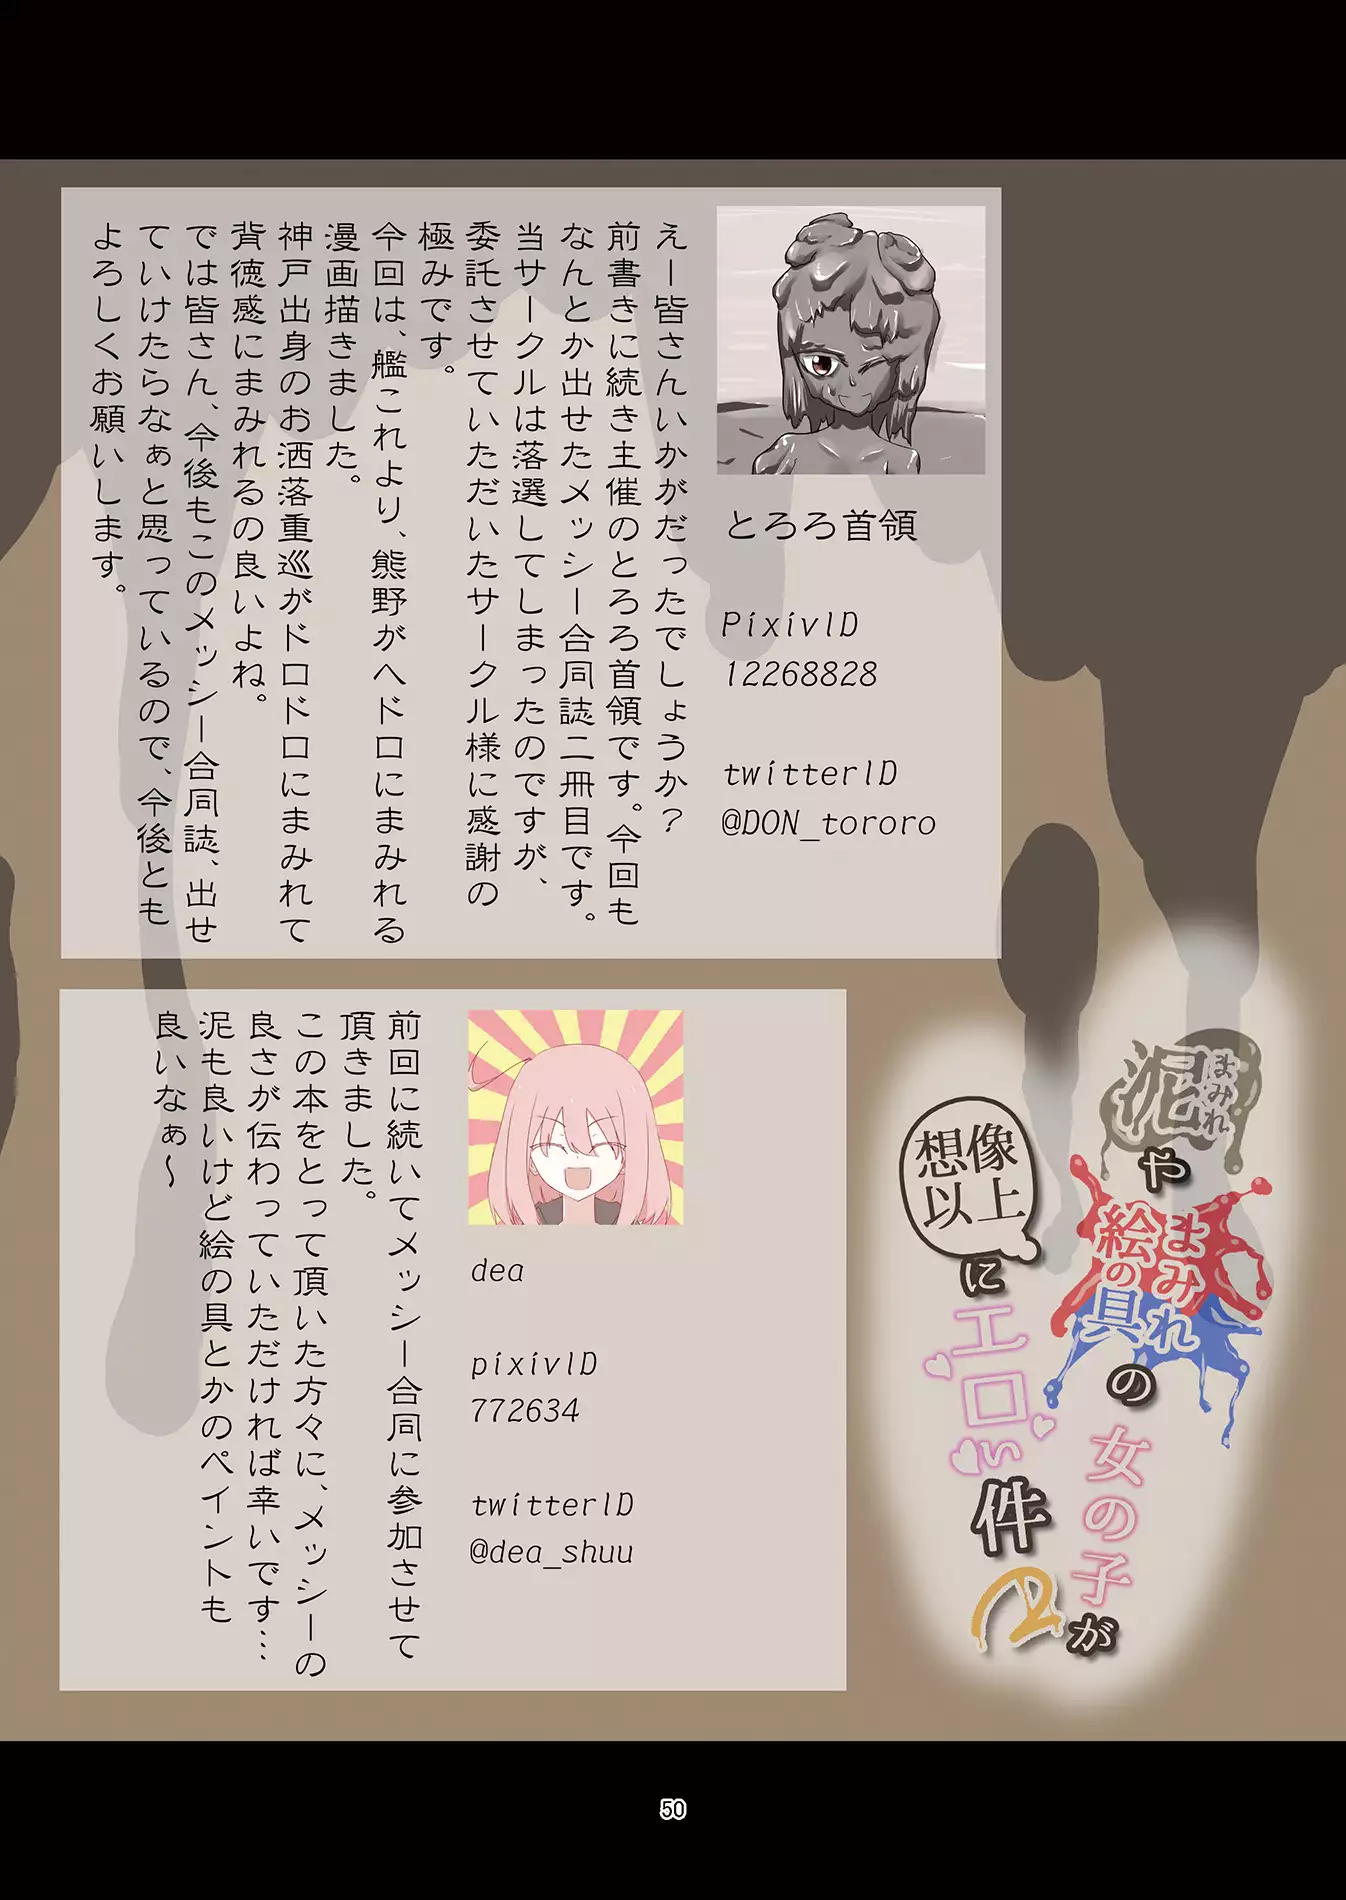 とろろ首領
PixivID
12268828
twitterID
@DON_tororo
えー皆さんいかがだったでしょうか？
前書きに続き主催のとろろ首領です。今回も
なんとか出せたメッシー合同誌二冊目です。
当サークルは落選してしまったのですが、
委託させていただいたサークル様に感謝の
極みです。
今回は、艦これより、熊野がヘドロにまみれる
漫画描きました。
神戸出身のお洒落重巡がドロドロにまみれて
背徳感にまみれるの良いよね。
では皆さん、今後もこのメッシー合同誌、出せ
ていけたらなぁと思っているので、今後とも
よろしくお願いします。
泥まみれ
や
絵の具まみれ
の
女の子が
想像以上
に
エロい
件
2
dea
pixivID
772634
twitterID
@dea_shuu
前回に続いてメッシー合同に参加させて
頂きました。
この本をとって頂いた方々に、メッシーの
良さが伝わっていただければ幸いです…
泥も良いけど絵の具とかのペイントも
良いなぁ～
50